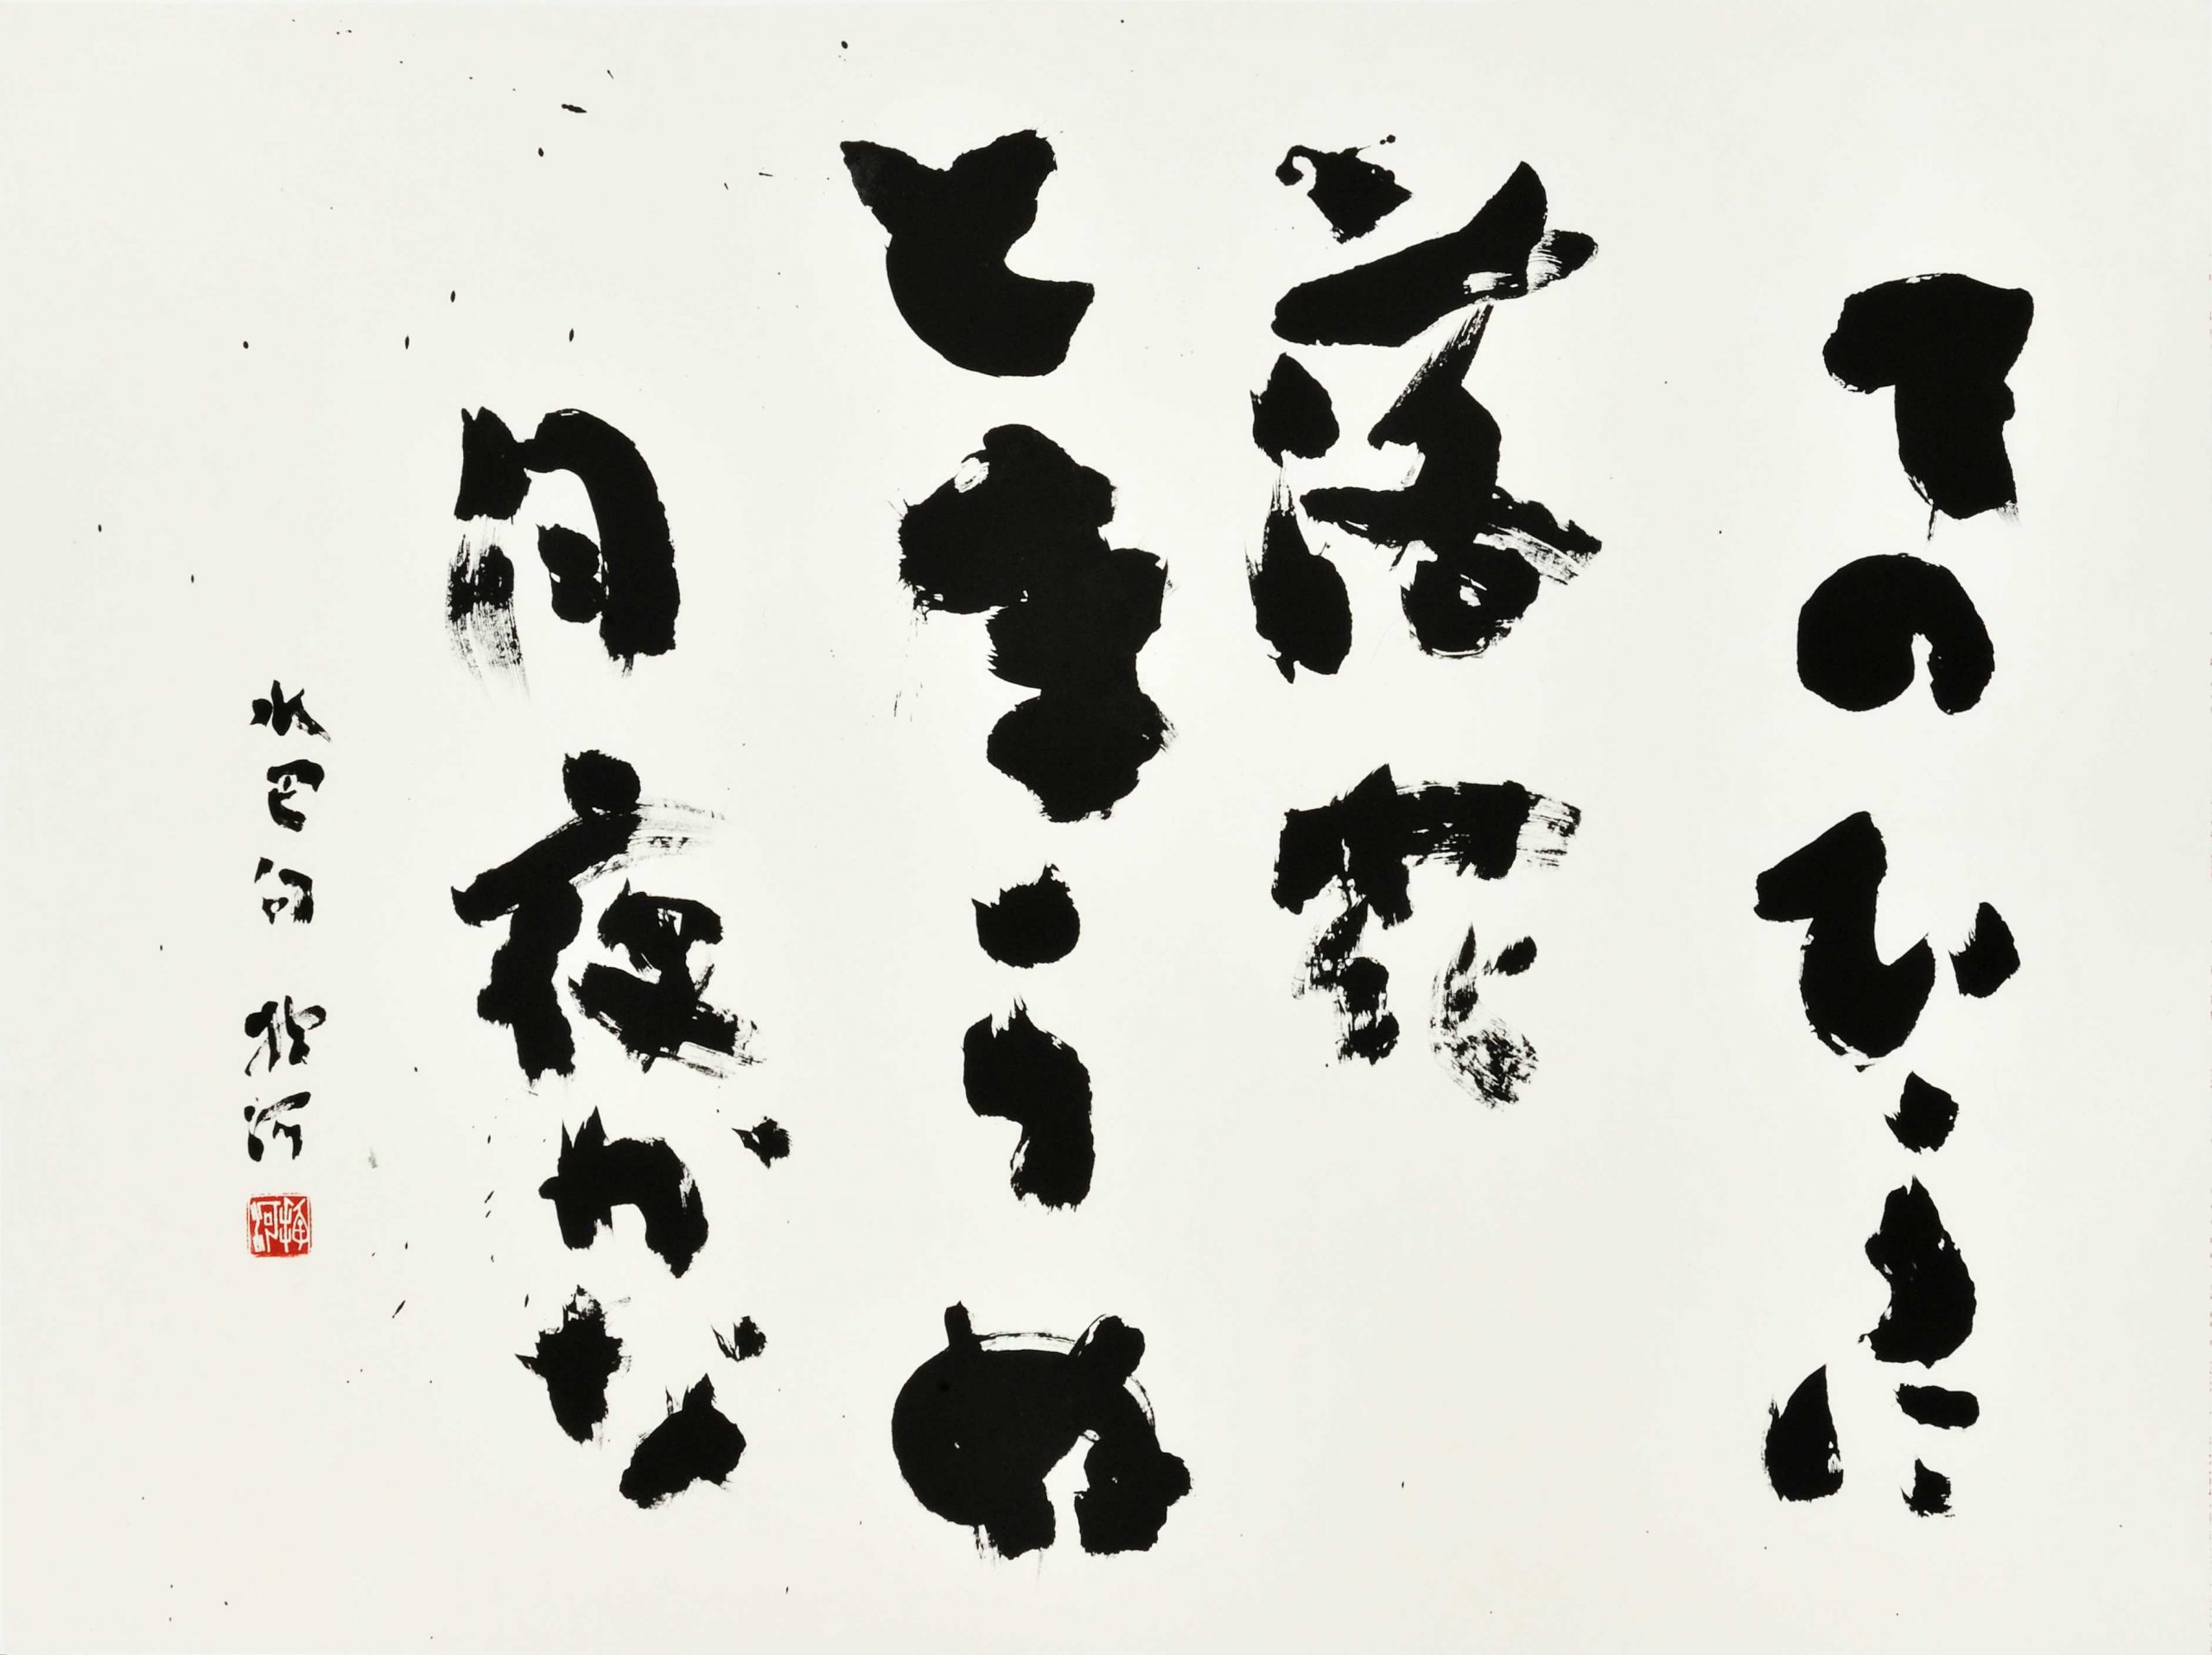 てのひらに
落花
とまらぬ
月夜かな
水巴句